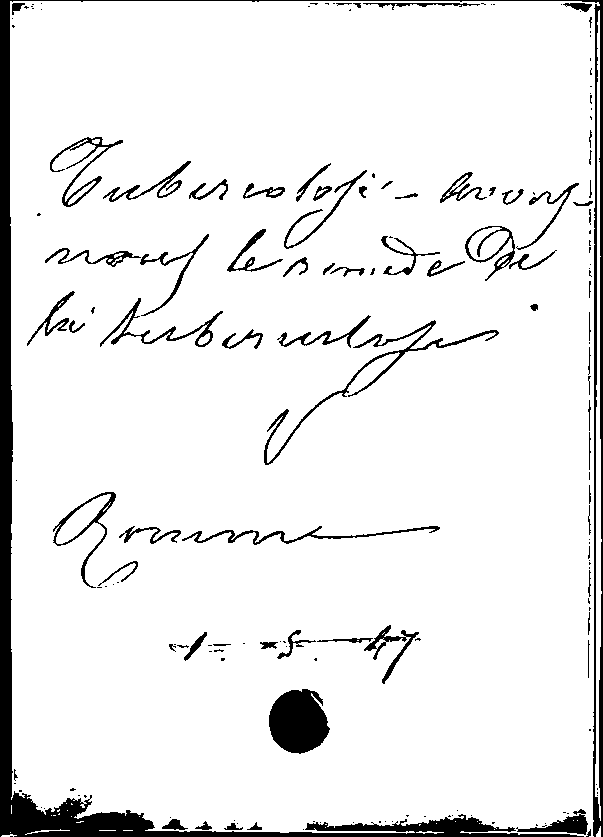 Tuberculose - Avons-
nous le remède De
la tuberculose
Romme
1. 5. 47